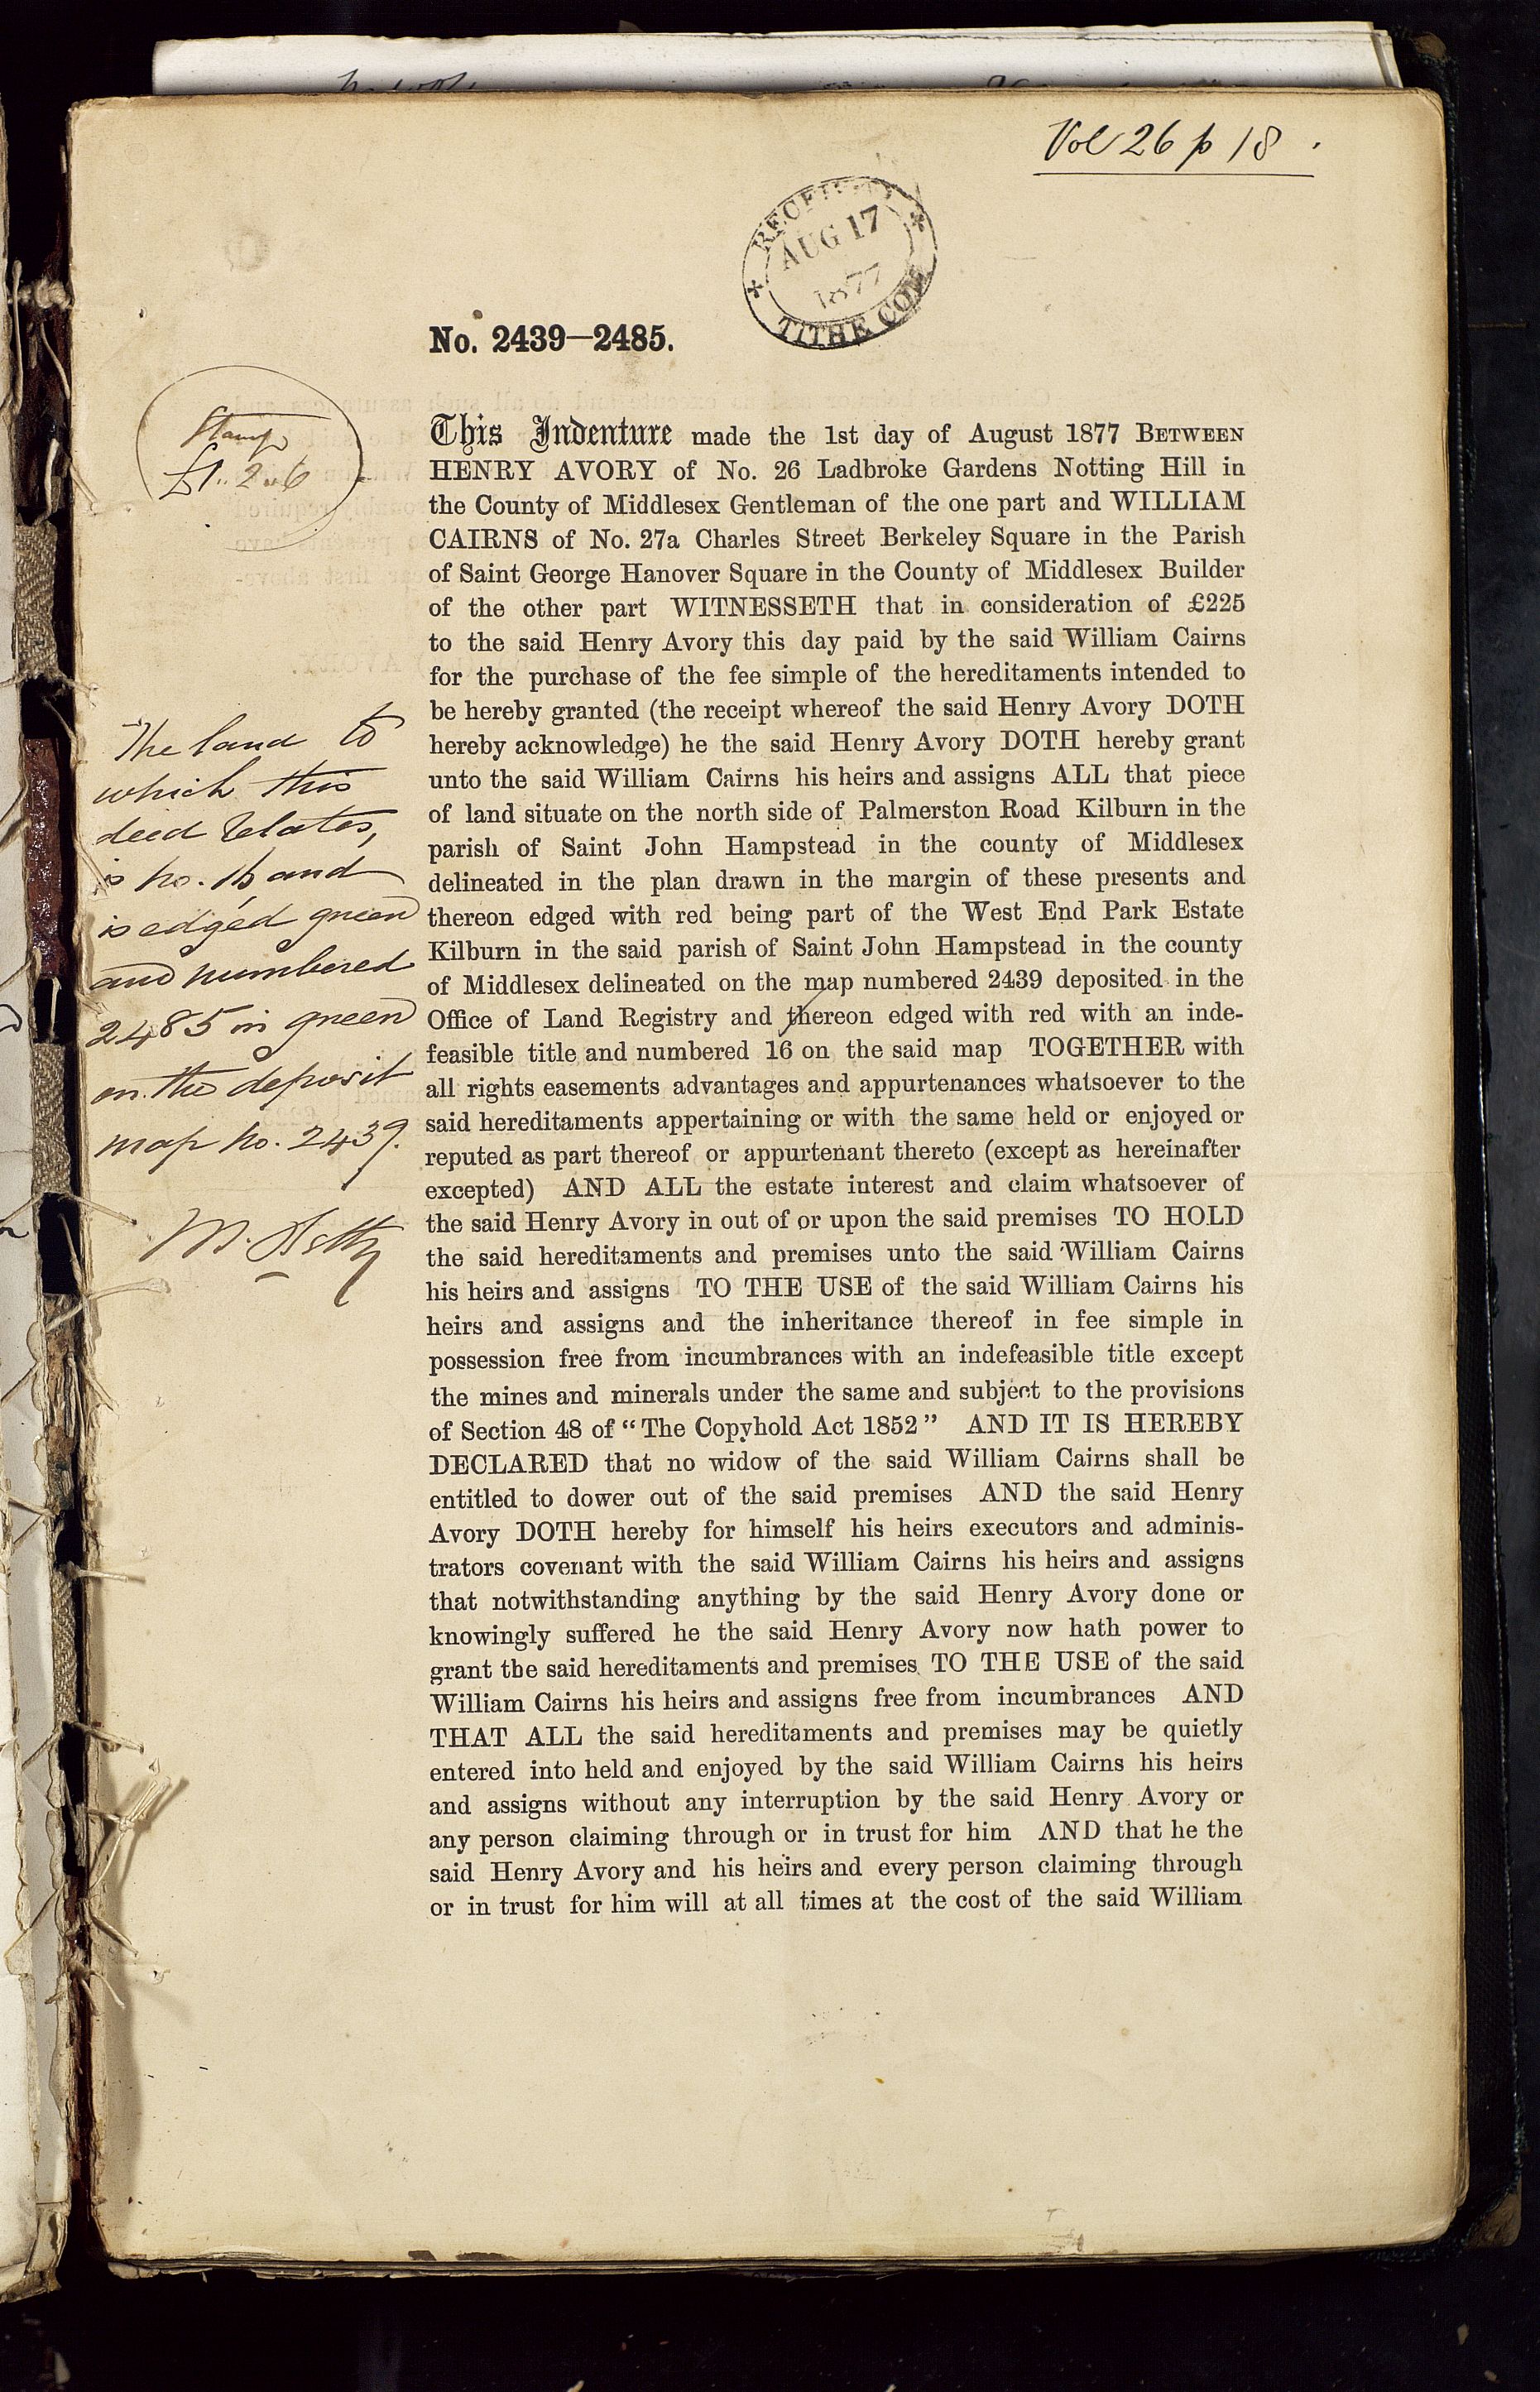 Vol 26 p 18.
AUG 17
1877
TITHE COM
No. 2439—2485.
Stamp
£1..2..6
This Indenture made the 1st day of August 1877 BETWEEN
HENRY AVORY of No. 26 Ladbroke Gardens Notting Hill in
the County of Middlesex Gentleman of the one part and WILLIAM
CAIRNS of No. 27a Charles Street Berkeley Square in the Parish
of Saint George Hanover Square in the County of Middlesex Builder
of the other part WITNESSETH that in consideration of £225
to the said Henry Avory this day paid by the said William Cairns
for the purchase of the fee simple of the hereditaments intended to
be hereby granted (the receipt whereof the said Henry Avory DOTH
hereby acknowledge) he the said Henry Avory DOTH hereby grant
unto the said William Cairns his heirs and assigns ALL that piece
of land situate on the north side of Palmerston Road Kilburn in the
parish of Saint John Hampstead in the county of Middlesex
delineated in the plan drawn in the margin of these presents and
thereon edged with red being part of the West End Park Estate
Kilburn in the said parish of Saint John Hampstead in the county
of Middlesex delineated on the map numbered 2439 deposited in the
Office of Land Registry and thereon edged with red with an inde-
feasible title and numbered 16 on the said map TOGETHER with
all rights easements advantages and appurtenances whatsoever to the
said hereditaments appertaining or with the same held or enjoyed or
reputed as part thereof or appurtenant thereto (except as hereinafter
excepted) AND ALL the estate interest and claim whatsoever of
the said Henry Avory in out of or upon the said premises TO HOLD
the said hereditaments and premises unto the said William Cairns
his heirs and assigns TO THE USE of the said William Cairns his
heirs and assigns and the inheritance thereof in fee simple in
possession free from incumbrances with an indefeasible title except
the mines and minerals under the same and subject to the provisions
of Section 48 of “The Copyhold Act 1852” AND IT IS HEREBY
DECLARED that no widow of the said William Cairns shall be
entitled to dower out of the said premises AND the said Henry
Avory DOTH hereby for himself his heirs executors and adminis-
trators covenant with the said William Cairns his heirs and assigns
that notwithstanding anything by the said Henry Avory done or
knowingly suffered he the said Henry Avory now hath power to
grant the said hereditaments and premises TO THE USE of the said
William Cairns his heirs and assigns free from incumbrances AND
THAT ALL the said hereditaments and premises may be quietly
entered into held and enjoyed by the said William Cairns his heirs
and assigns without any interruption by the said Henry Avory or
any person claiming through or in trust for him AND that he the
said Henry Avory and his heirs and every person claiming through
or in trust for him will at all times at the cost of the said William
The land to
which this
deed relates,
is no. 16 and
is edged green
and numbered
2485 in green
on the deposit
map no. 2439.